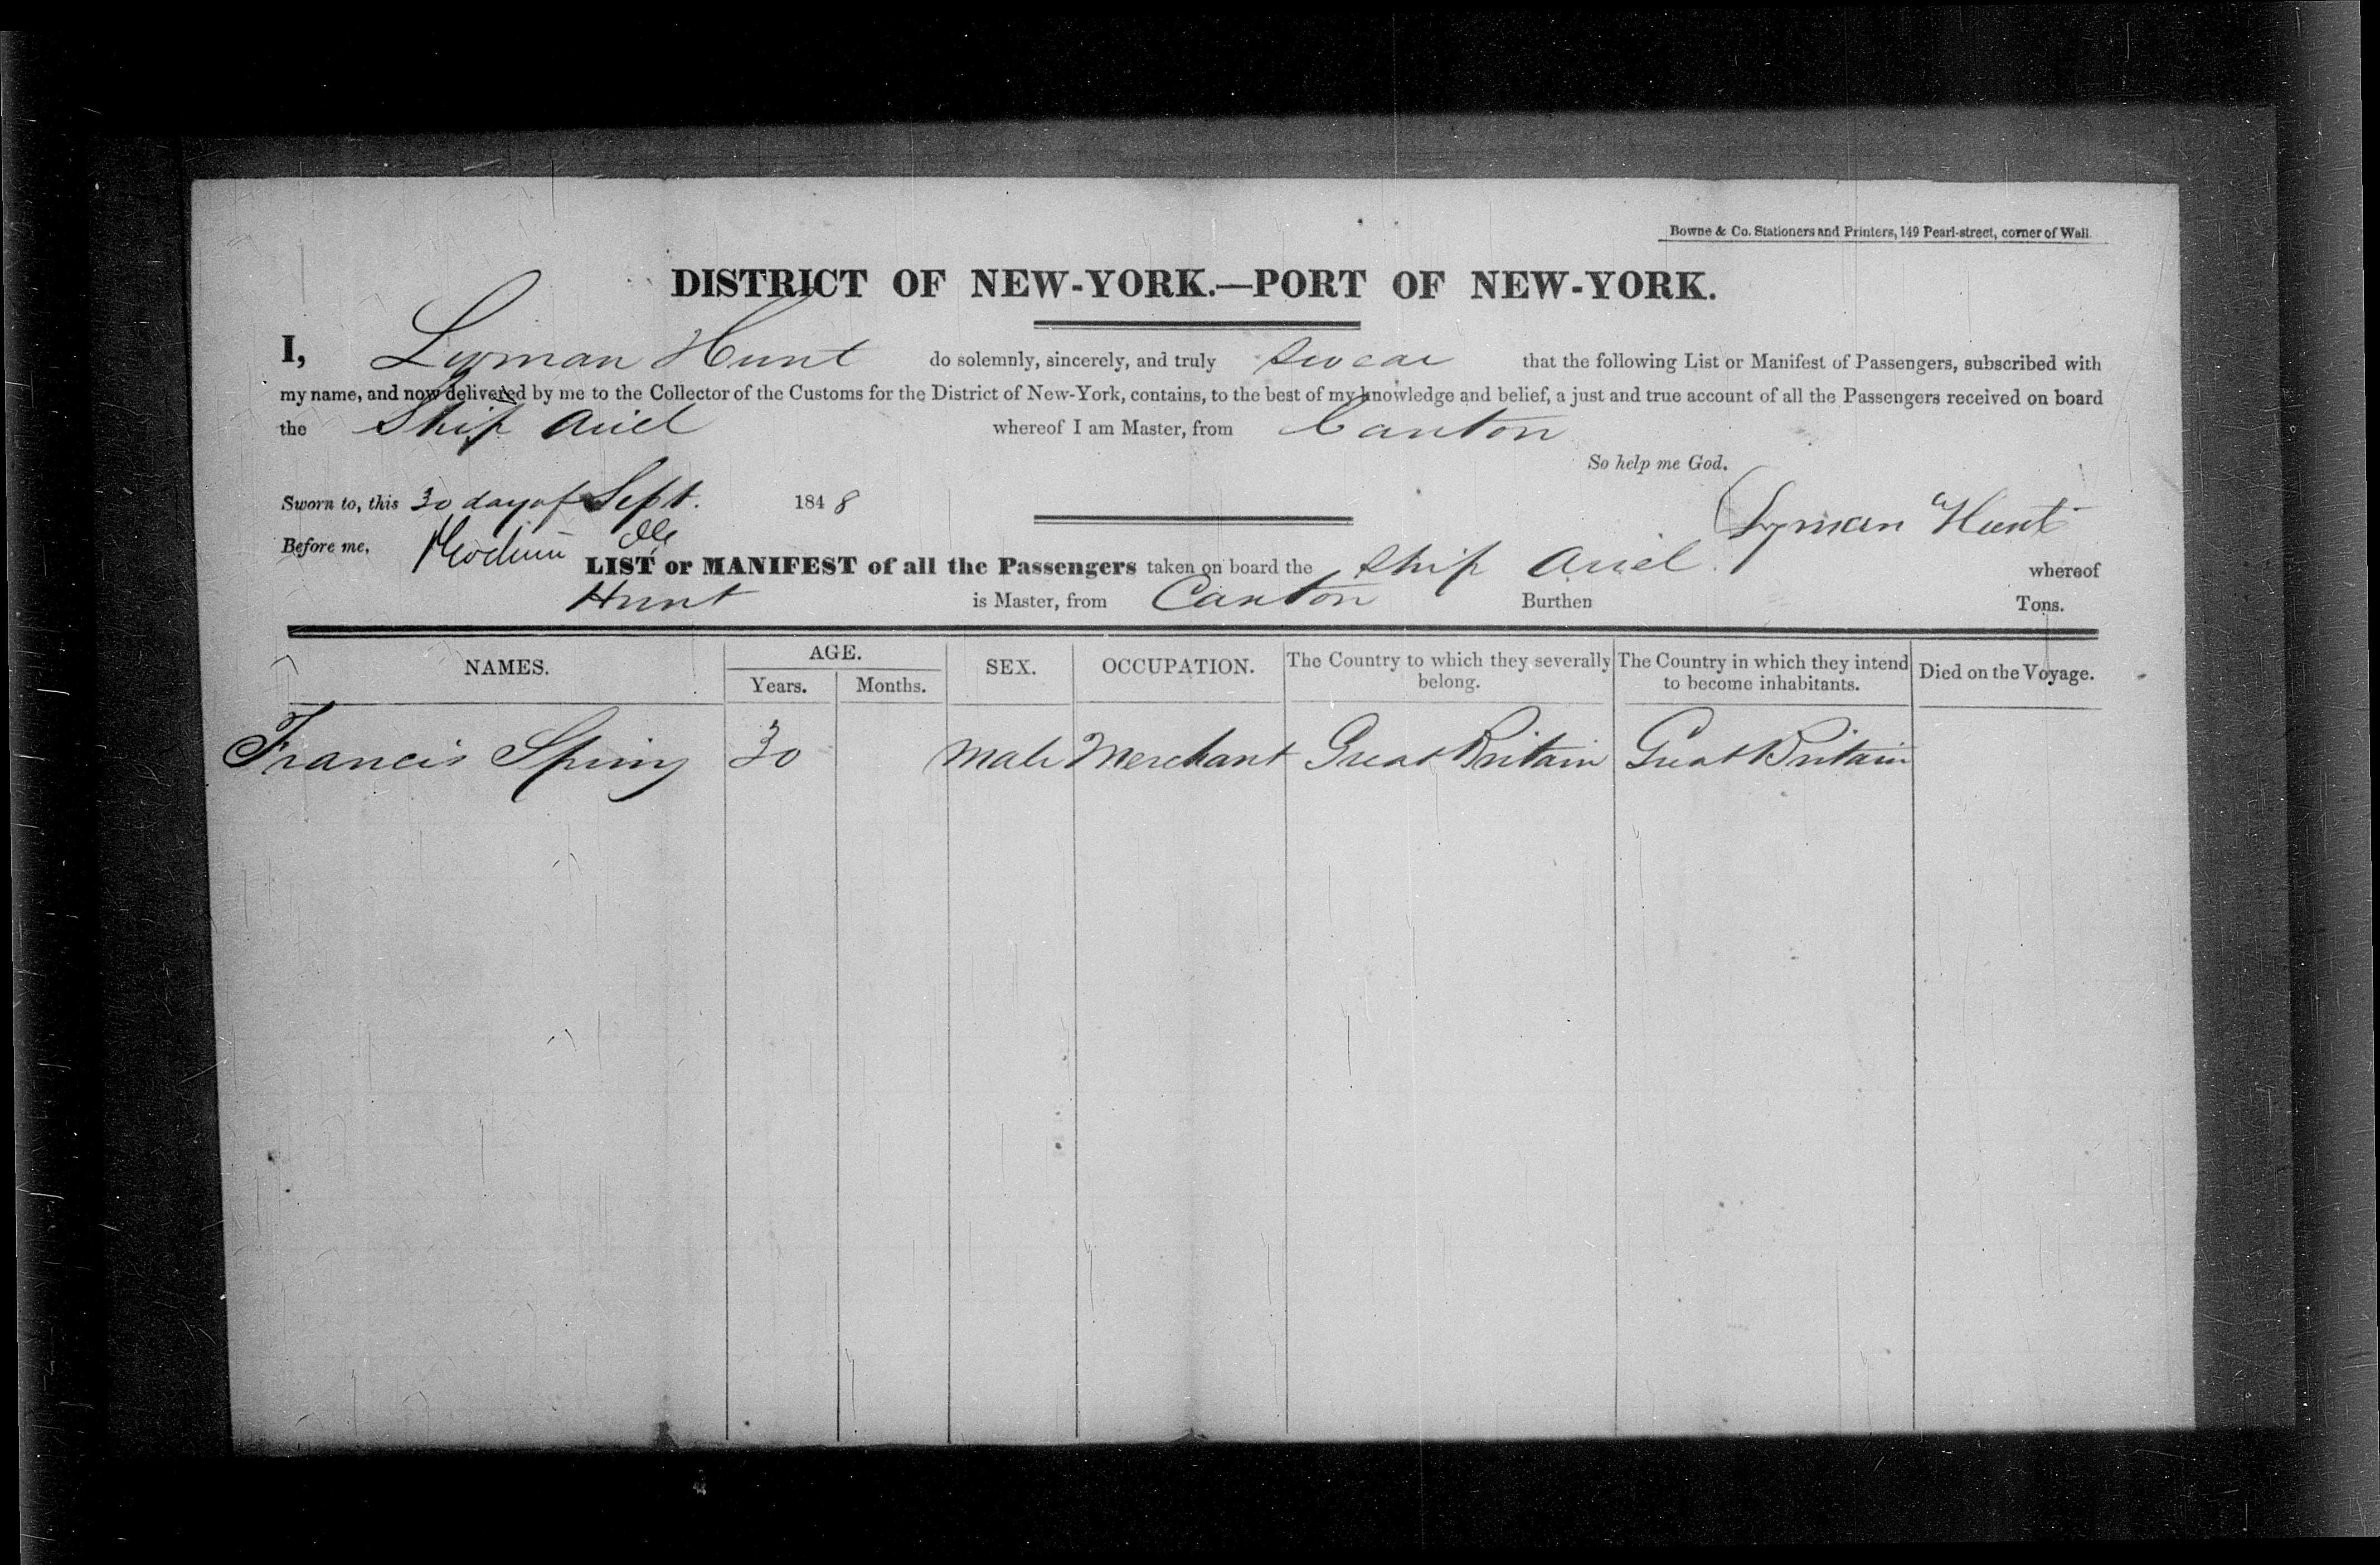 Bowne & Co. Stationers and Printers, 149 Pearl-street, corner of Wall.
DISTRICT OF NEW-YORK.—PORT OF NEW-YORK.
I, Lyman Hunt do solemnly, sincerely, and truly swear that the following List or Manifest of Passengers, subscribed with
my name, and now delivered by me to the Collector of the Customs for the District of New-York, contains, to the best of my knowledge and belief, a just and true account of all the Passengers received on board
the Ship Ariel whereof I am Master, from Canton
So help me God.
Sworn to, this 30 day of Sept. 1848
Lyman Hunt
Before me,
LIST or MANIFEST of all the Passengers taken on board the Ship Ariel whereof
Hunt is Master, from Canton Burthen Tons.
NAMES. AGE. SEX. OCCUPATION. The Country to which they severally belong. The Country in which they intend to become inhabitants. Died on the Voyage.
Years. Months.
Francis Spring 30 Male Merchant Great Britain Great Britain